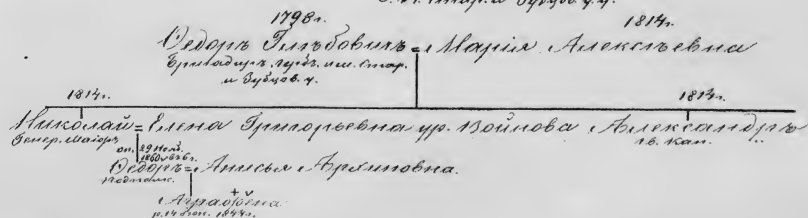 С. И. Стар. и Зубцов. у.у.
1798г. 1814г.
Ѳедоръ Глѣбовичъ = Марія Алексѣевна
Бригадиръ. губ. им. Стар.
и Зубцов. у.
1814г. 1814г.
Николай = Елена Григорьевна ур. Войнова Александръ
Генер. Маіоръ гв. кап.
оп. 29 Нояб.
Ѳедоръ = Анисья Архиповна.
Подполк.
Аграфена
р. 14 1844г.